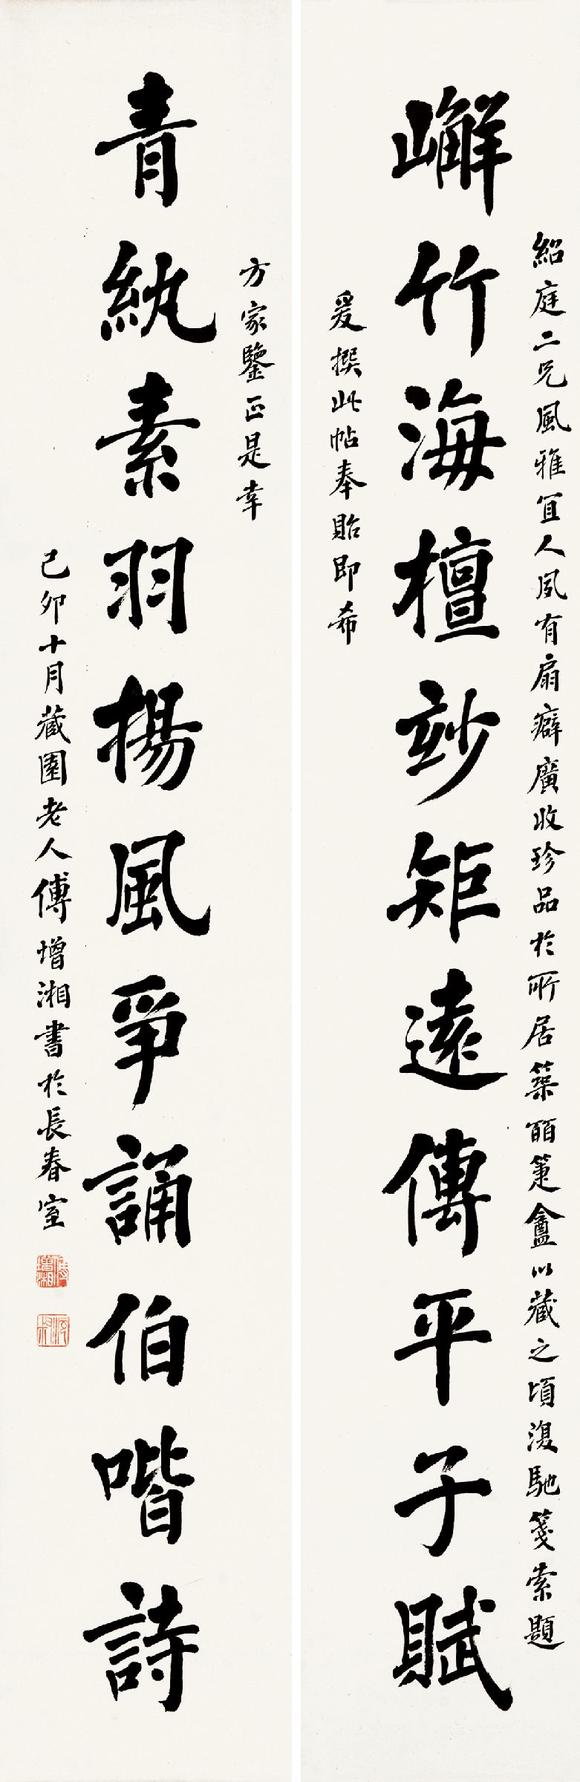 紹庭二兄風雅宜人夙有扇癖廣收珍品於所居築皕箑盦以藏之頃復馳箋索題
嶰竹海檀竗矩遠傳平子賦
爰撰此帖奉貽即希
方家鑒正是幸
青紈素羽揚風爭誦伯喈詩
己卯十月藏園老人傅增湘書於長春室